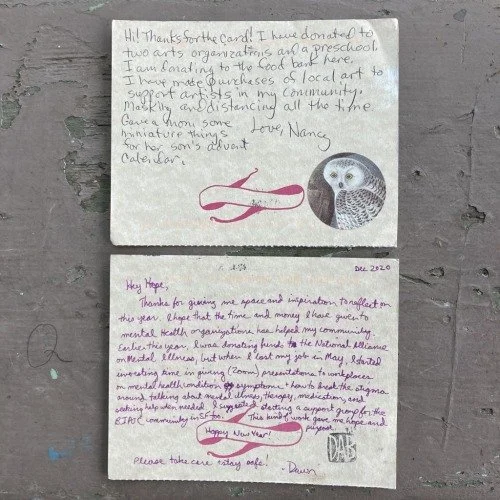 Hi! Thanks for the card! I have donated to
two arts organizations and a preschool.
I am donating to the food bank here.
I have made purchases of local art to
support artists in my community.
Masking and distancing all the time.
Gave a mom some
miniature things
for her son's advent
calendar.
Love, Nancy
DEC 2020
Hey Hope,
Thanks for giving me space and inspiration to reflect on
this year. I hope that the time and money I have given to
mental health organizations has helped my community.
Earlier this year, I was donating funds to the National Alliance
on Mental Illness, but when I lost my job in May, I started
investing time in giving (zoom) presentations to workplaces
on mental health condition symptoms + how to break the stigma
around talking about mental illness, therapy, medication, and
seeking help when needed. I suggested starting a support group for the
BIPOC community in SF too. This kind of work gave me hope and
purpose.
Happy New Year!
DAB
Please take care + stay safe!
- Dawn